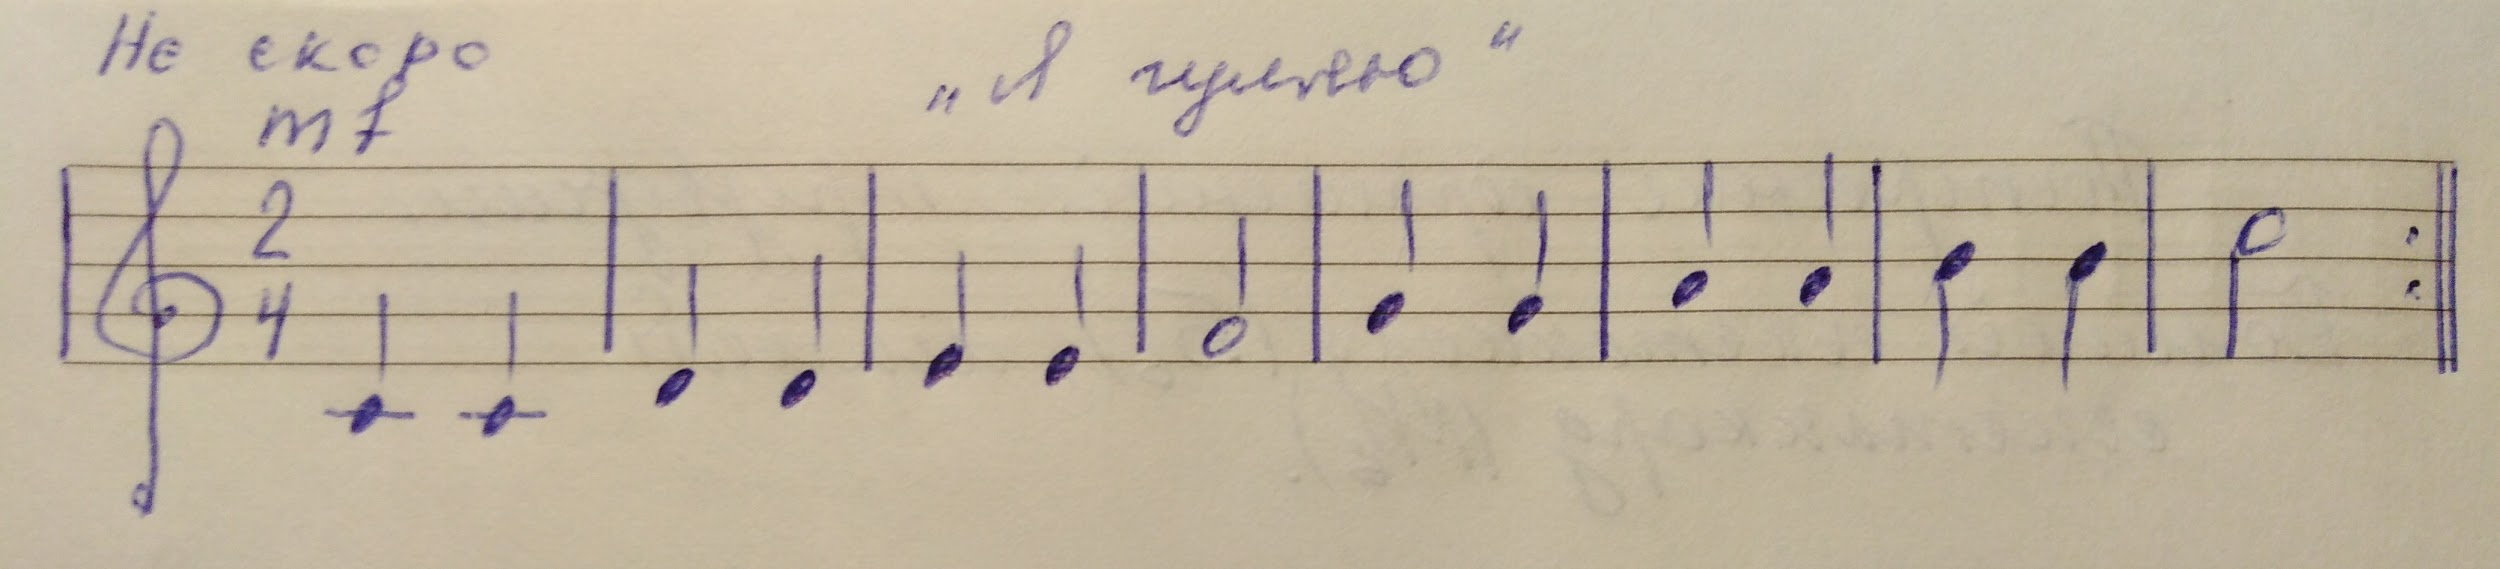 Не скоро
„Я гуляю“
mf
2
4